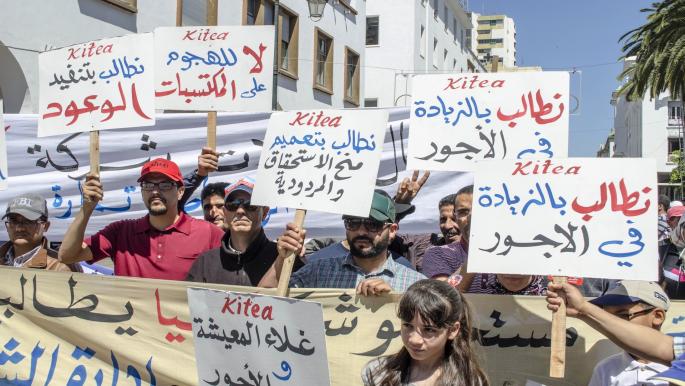 Kitea
نطالب بتنفيد
الوعود
Kitea
لا للهجوم
على المكتسبات
Kitea
نطالب بتعميم
منح الاستحقاق
والمردودية
Kitea
نطالب بالزيادة
في الأجور
Kitea
نطالب بالزيادة
في الاجور
Kitea
غلاء المعيشة
و
الأجور
يطالب